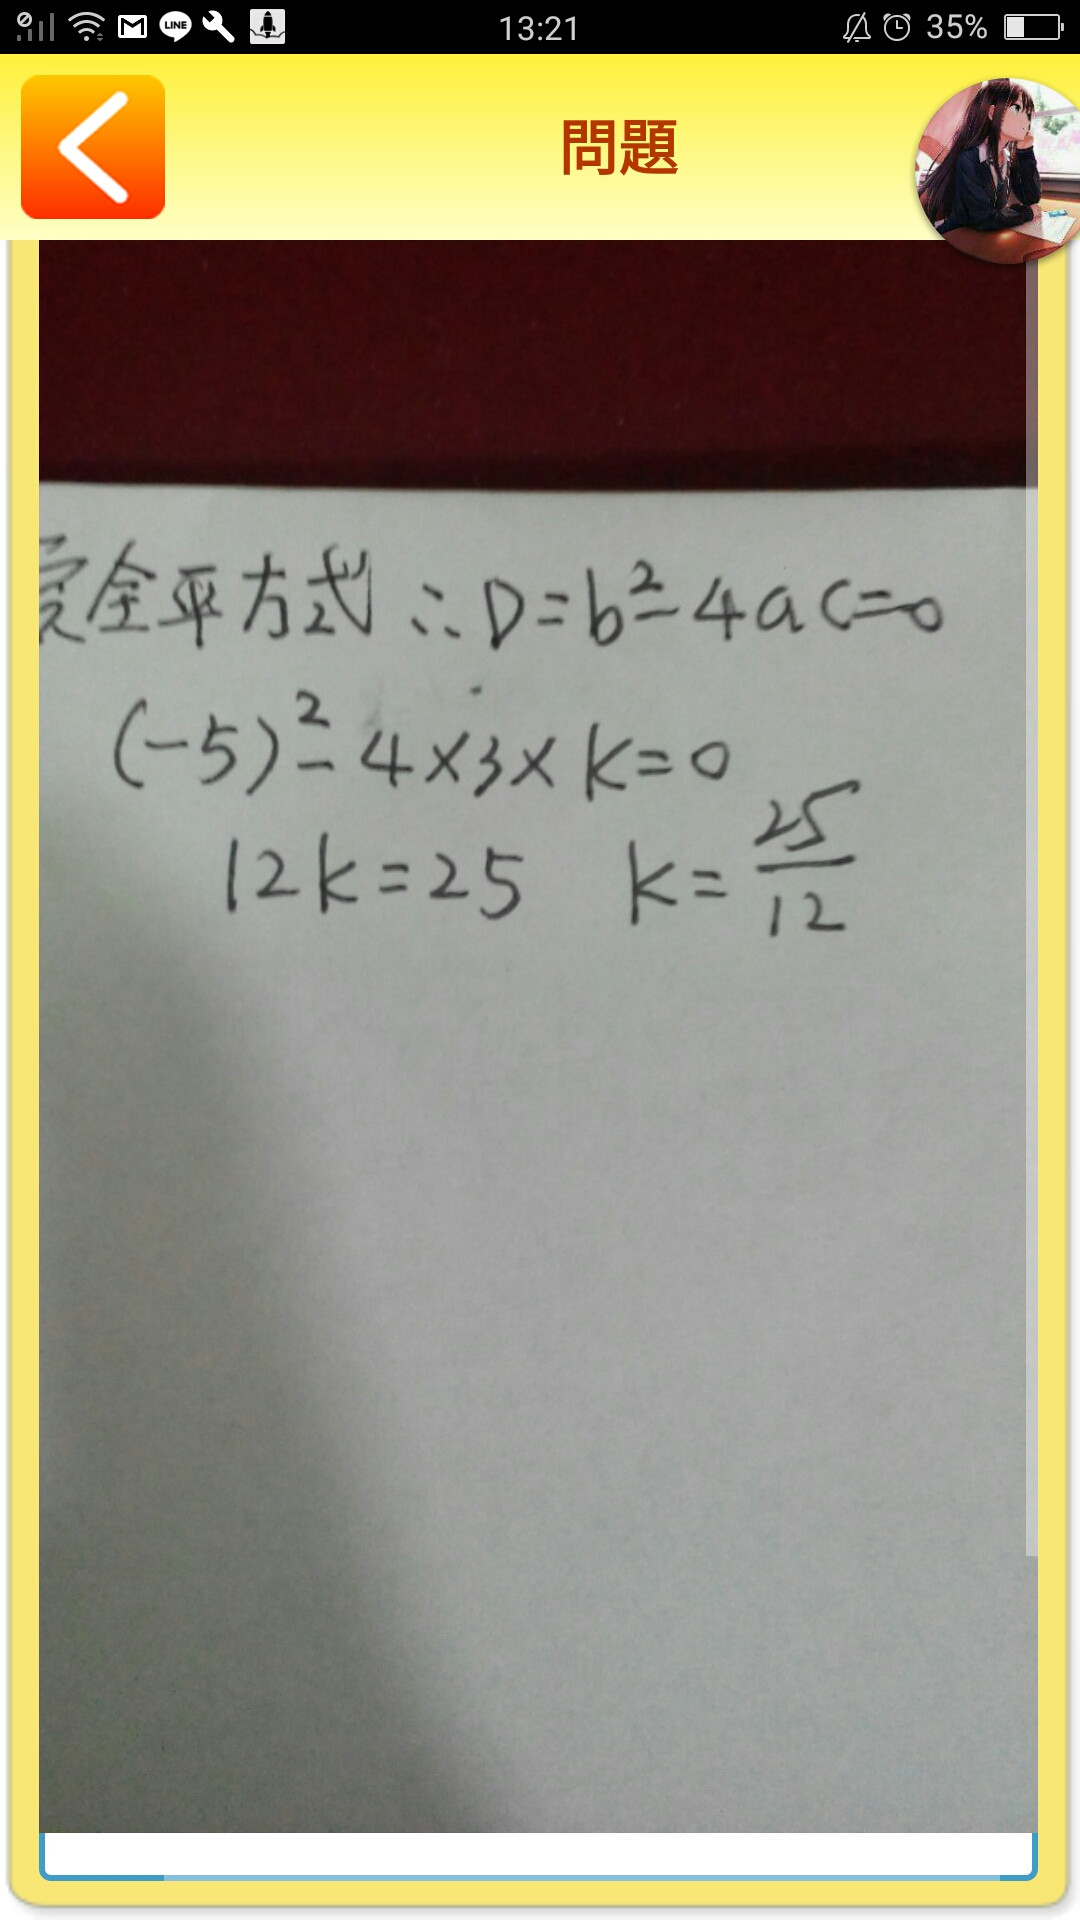 LINE
13:21
35%
問題
完全平方式 ∴ D=b²-4ac=0
(-5)²-4×3×k=0
12k=25 k=25/12